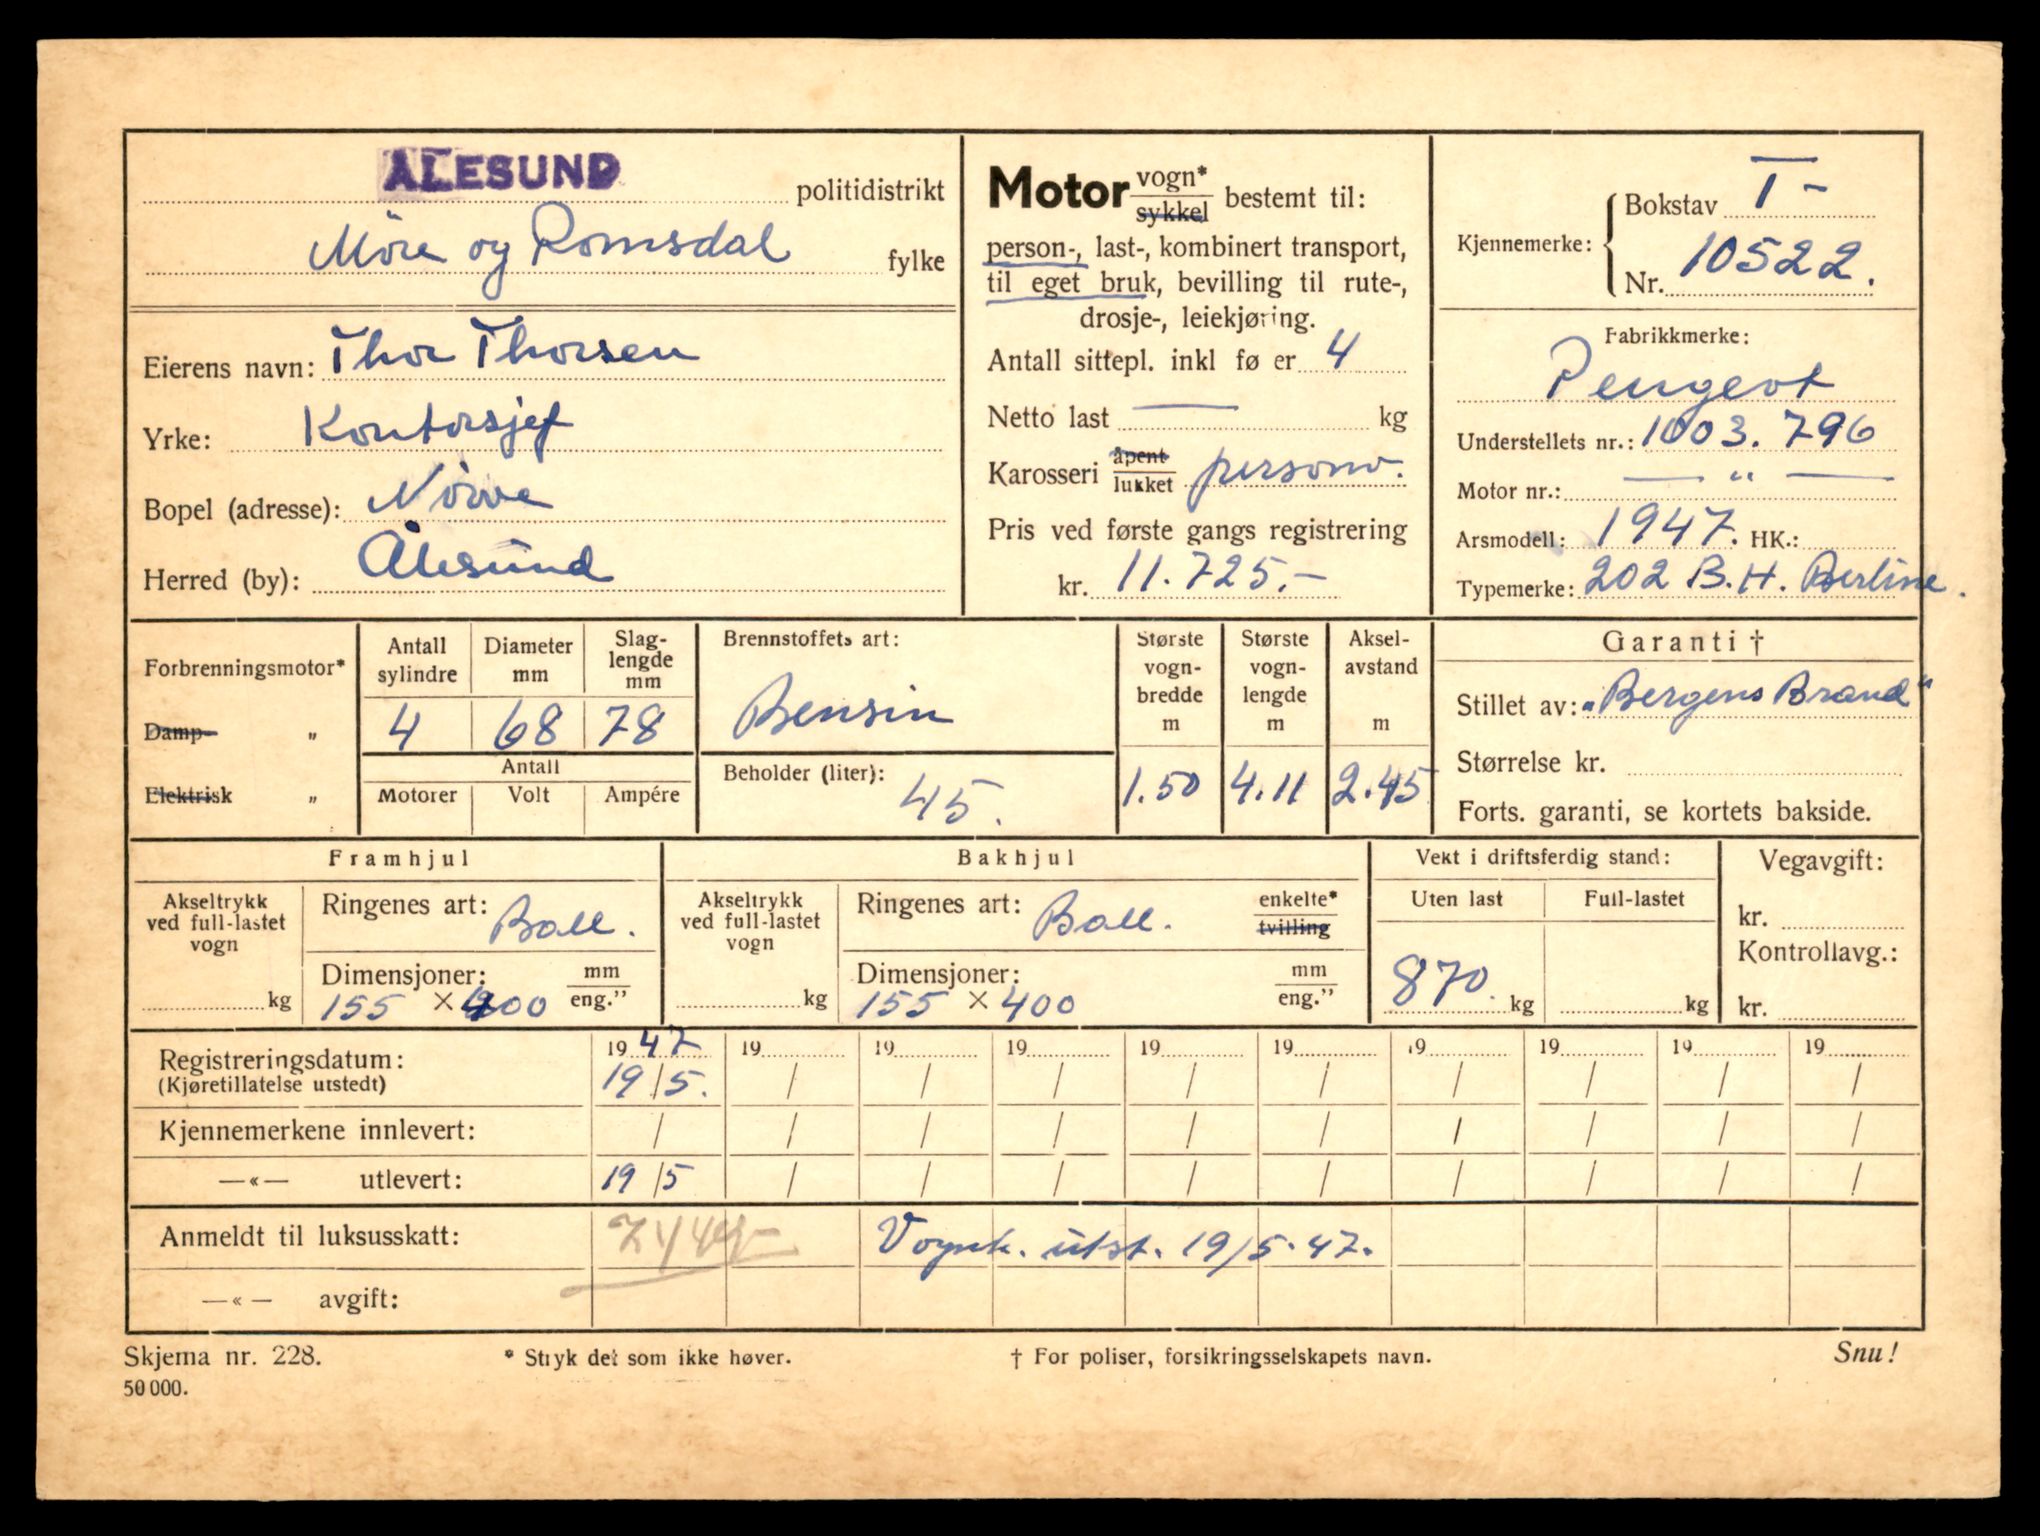 ÅLESUND politidistrikt
Möre og Romsdal fylke
Eierens navn: Thor Thorsen
Yrke: Kontorsjef
Bopel (adresse): Nörve
Herred (by): Ålesund
Motor vogn* sykkel bestemt til:
person-, last-, kombinert transport,
til eget bruk, bevilling til rute-,
drosje-, leiekjøring.
Antall sittepl. inkl fø er 4
Netto last — kg
Karosseri åpent lukket personv.
Pris ved første gangs registrering
kr. 11.725.-
Kjennemerke: Bokstav T-
Nr. 10522.
Fabrikkmerke:
Peugeot
Understellets nr.: 1003.796
Motor nr.: — " —
Arsmodell: 1947. HK.:
Typemerke: 202 B.H. Berline.
Forbrenningsmotor*
Damp- "
Elektrisk "
Antall sylindre Diameter mm Slag-lengde mm
4 68 78
Antall
Motorer Volt Ampére
Brennstoffets art:
Bensin
Beholder (liter): 45.
Største vogn-bredde m Største vogn-lengde m Aksel-avstand m
1.50 4.11 2.45
Garanti †
Stillet av: "Bergens Brand"
Størrelse kr.
Forts. garanti, se kortets bakside.
Framhjul
Akseltrykk ved full-lastet vogn
kg
Ringenes art: Ball.
Dimensjoner: mm eng."
155 × 400
Bakhjul
Akseltrykk ved full-lastet vogn
kg
Ringenes art: Ball. enkelte* tvilling
Dimensjoner: mm eng."
155 × 400
Vekt i driftsferdig stand:
Uten last Full-lastet
870 kg kg
Vegavgift:
kr.
Kontrollavg.:
kr.
Registreringsdatum: 1947 19 19 19 19 19 19 19 19 19
(Kjøretillatelse utstedt) 19/5. / / / / / / / / /
Kjennemerkene innlevert: / / / / / / / / / /
—«— utlevert: 19/5 / / / / / / / / /
Anmeldt til luksusskatt: Vognk. utst. 19/5.47.
—«— avgift:
Skjema nr. 228. * Stryk det som ikke høver. † For poliser, forsikringsselskapets navn. Snu!
50 000.